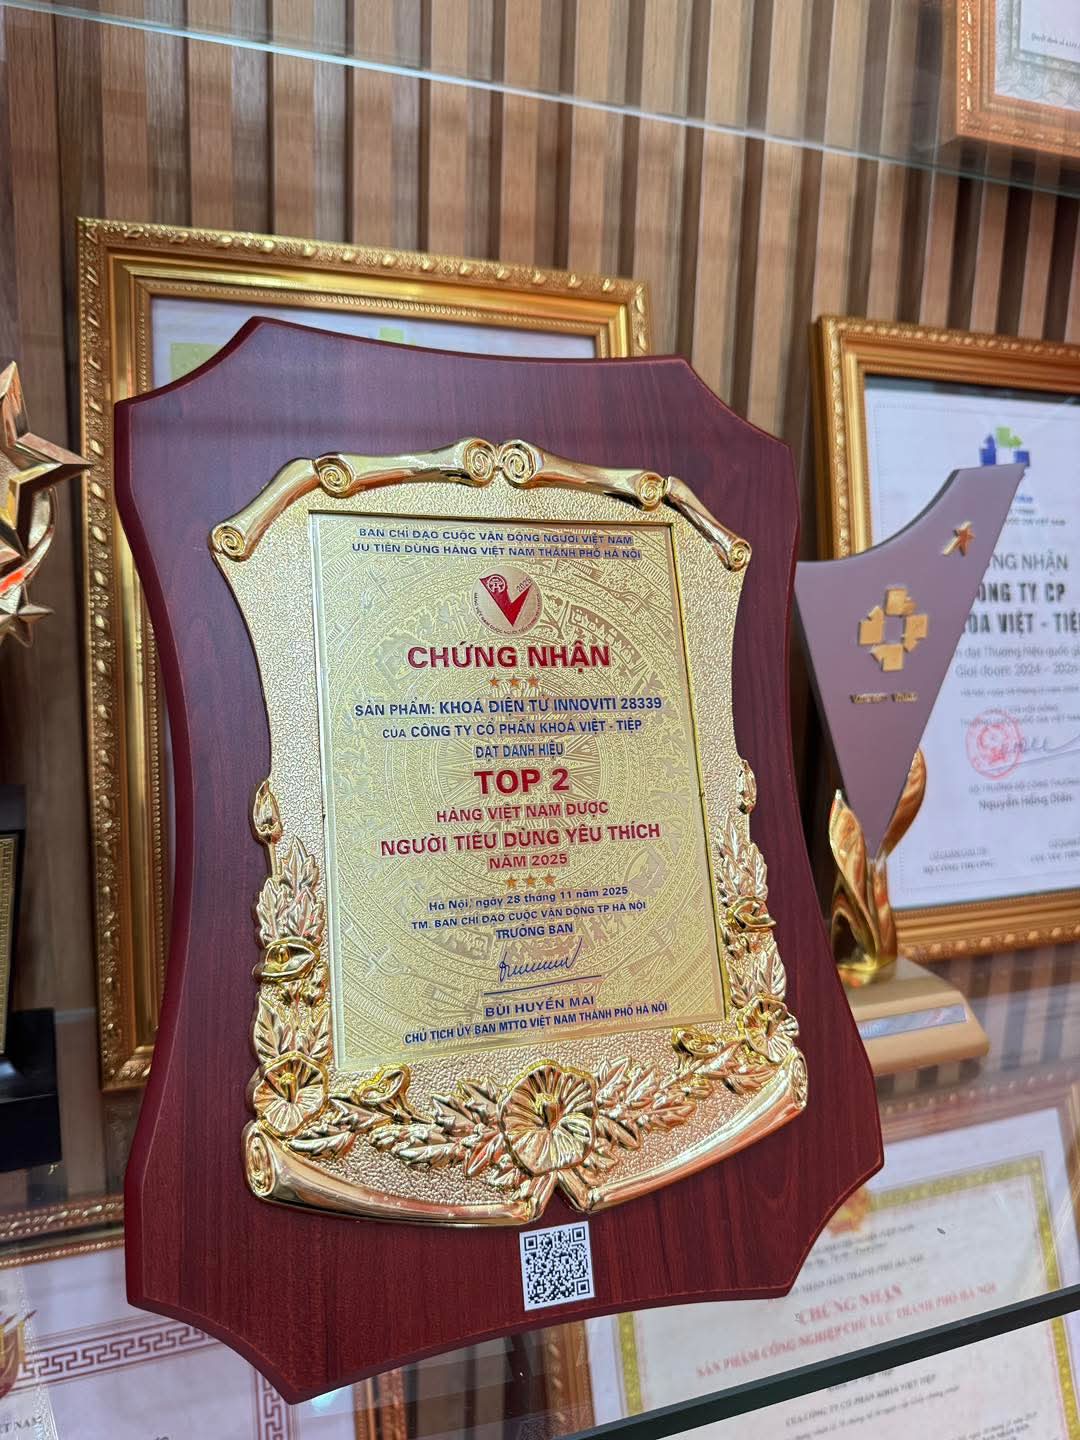 BAN CHỈ ĐẠO CUỘC VẬN ĐỘNG NGƯỜI VIỆT NAM
ƯU TIÊN DÙNG HÀNG VIỆT NAM THÀNH PHỐ HÀ NỘI
2025
CHỨNG NHẬN
SẢN PHẨM: KHOÁ ĐIỆN TỬ INNOVITI 28339
CỦA CÔNG TY CỔ PHẦN KHOÁ VIỆT - TIỆP
ĐẠT DANH HIỆU
TOP 2
HÀNG VIỆT NAM ĐƯỢC
NGƯỜI TIÊU DÙNG YÊU THÍCH
NĂM 2025
Hà Nội, ngày 28 tháng 11 năm 2025
TM. BAN CHỈ ĐẠO CUỘC VẬN ĐỘNG TP HÀ NỘI
TRƯỞNG BAN
BÙI HUYỀN MAI
CHỦ TỊCH ỦY BAN MTTQ VIỆT NAM THÀNH PHỐ HÀ NỘI
NG NHẬN
ÔNG TY CP
HÓA VIỆT - TIỆP
đạt Thương hiệu quốc gi
Giai đoạn: 2024 - 2026
Nguyễn Hồng Diên
CHỨNG NHẬN
SẢN PHẨM CÔNG NGHIỆP CHỦ LỰC THÀNH PHỐ HÀ NỘI
CỦA CÔNG TY CỔ PHẦN KHÓA VIỆT TIỆP
ỆT NAM